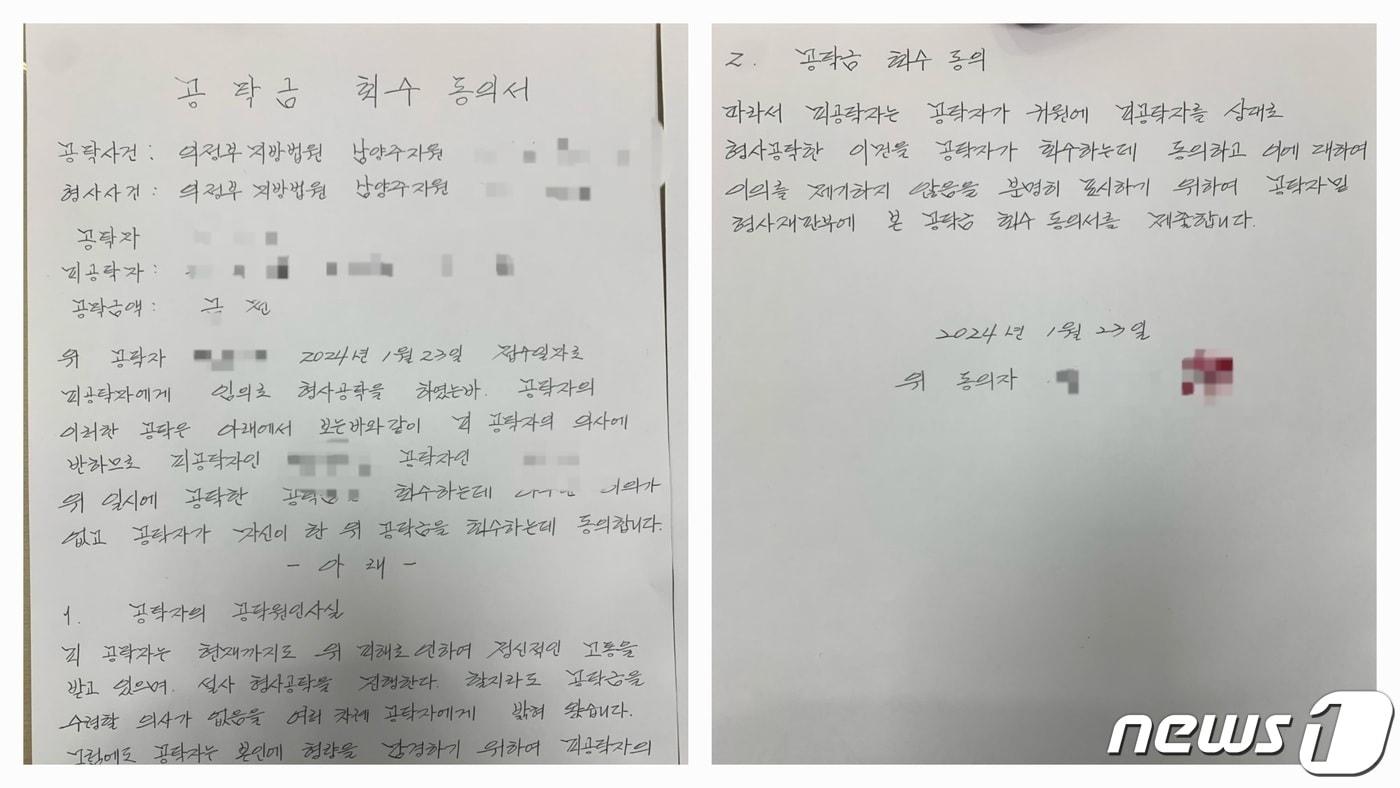 공 탁 금 회 수 동의서
공탁사건 : 의정부 지방법원 남양주지원
형사사건 : 의정부 지방법원 남양주지원
공탁자
피공탁자 :
공탁금액 : 금 전
위 공탁자 2024년 1월 23일 접수일자로
피공탁자에게 임의로 형사공탁을 하였는바. 공탁자의
이러한 공탁은 아래에서 보는바와같이 피 공탁자의 의사에
반하므로 피공탁자인 공탁자인
위 일시에 공탁한 회수하는데 이의가
없고 공탁자가 자신이 한 위 공탁금을 회수하는데 동의합니다.
- 아 래 -
1. 공탁자의 공탁원인사실
피 공탁자는 현재까지도 위 피해로 인하여 정신적인 고통을
받고 있으며. 설사 형사공탁을 진행한다. 할지라도 공탁금을
수령할 의사가 없음을 여러 차례 공탁자에게 밝혀 왔습니다.
그럼에도 공탁자는 본인에 형량을 감경하기 위하여 피공탁자의
2. 공탁금 회수 동의
따라서 피공탁자는 공탁자가 귀원에 피공탁자를 상대로
형사공탁한 이건을 공탁자가 회수하는데 동의하고 이에 대하여
이의를 제기하지 않음을 분명히 표시하기 위하여 공탁자 및
형사재판부에 본 공탁금 회수 동의서를 제출합니다.
2024년 1월 23일
위 동의자
news1